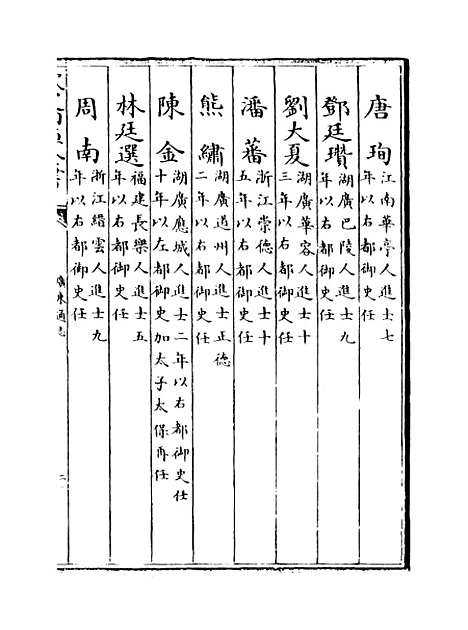 唐珣 江南華亭人進士七年以右都御史任
鄧廷瓚 湖廣巴陵人進士九年以右都御史任
劉大夏 湖廣華容人進士十三年以右都御史任
潘蕃 浙江崇德人進士十五年以右都御史任
熊繡 湖廣道州人進士正德二年以右都御史任
陳金 湖廣應城人進士二年以右都御史任十年以左都御史加太子太保再任
林廷選 福建長樂人進士五年以右都御史任
周南 浙江縉雲人進士九年以右都御史任
廣東通志
二